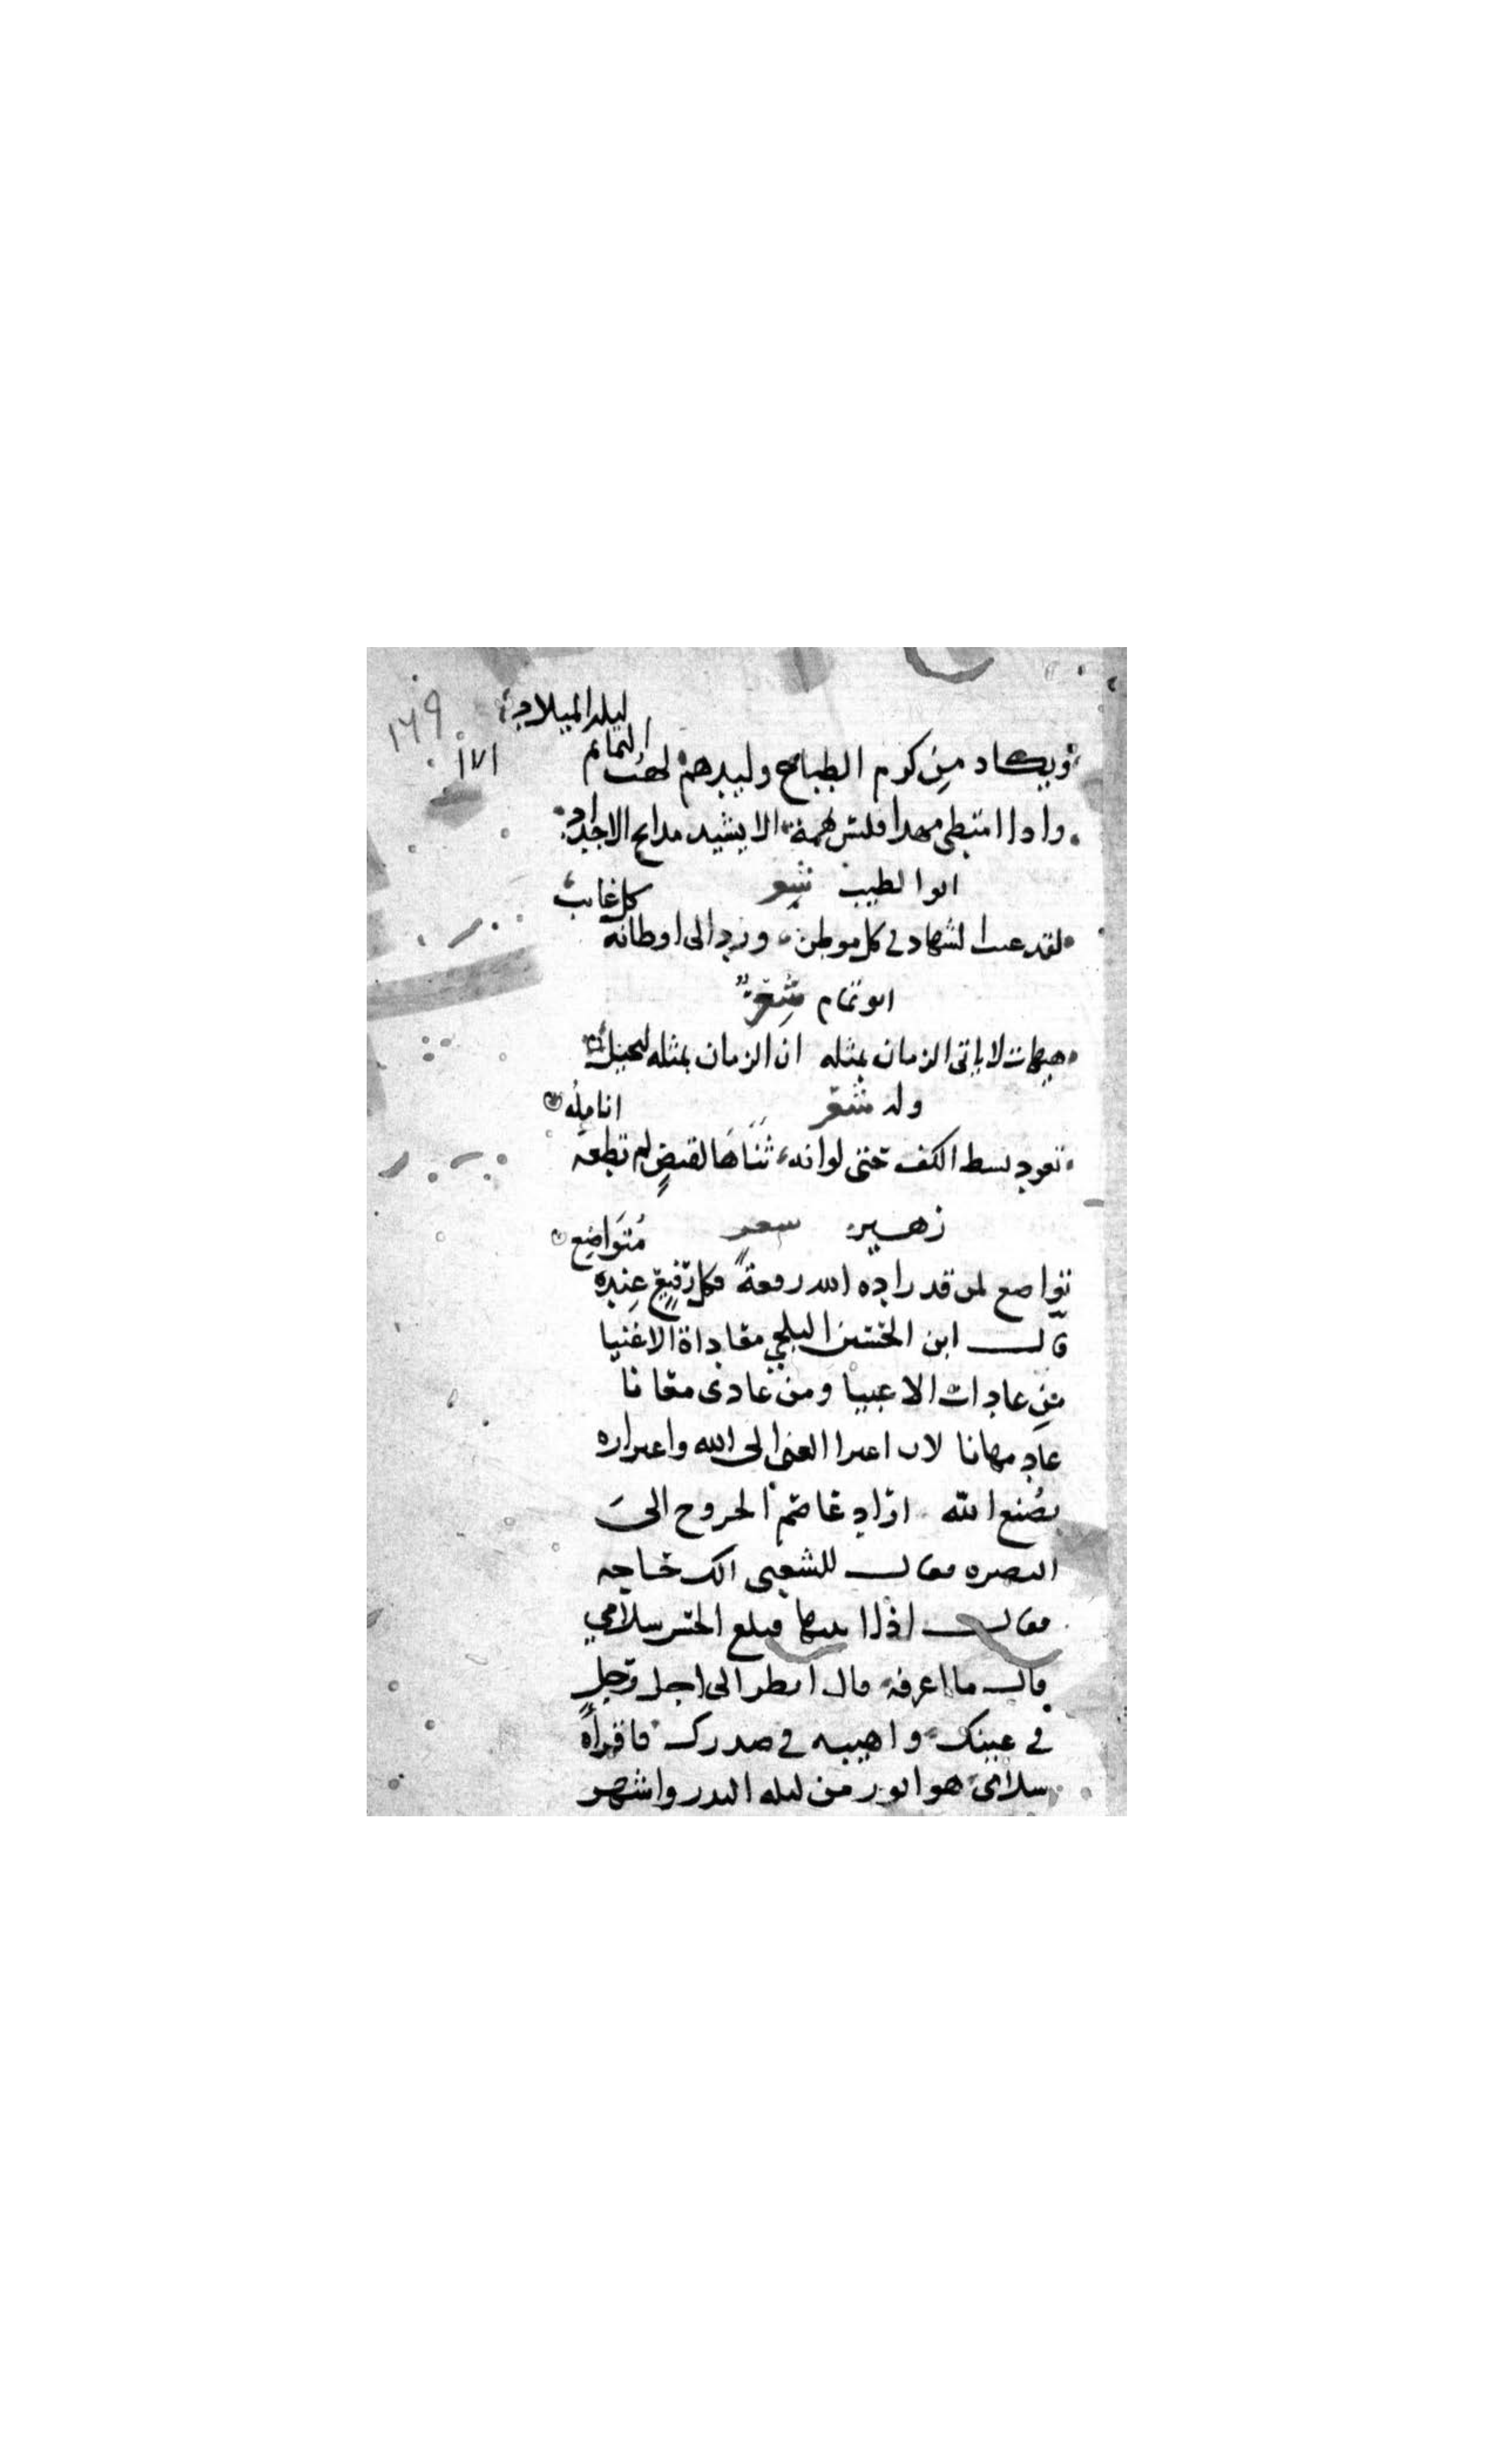 ١٦٩
١٧١
ويكاد من كرم الطبايع وليدهم لهب التمائم ليلة الميلاد
واذا امتطى مهدا فليس لهمه الا نشيد مدايح الاجداد
ابوا لطيب شعر
لقد عب الشهاد في كل موطن ورد الى اوطانه كل غائب
ابو تمام شعر
هيهات لا ياتي الزمان بمثله ان الزمان بمثله لبخيل
وله شعر
تعود بسط الكف حتى لوانه ثناها لقبض لم تطعه انامله
زهير شعر
تواضع لمن قد زاده الله رفعة فكل رفيع عنده متواضع
قال ابن الحسين البلخي معاداة الاغنيا
من عادات الاغبيا ومن عادى معانا
عاد مهانا لان اعتزا الغني الى الله واعتزازه
بصنع الله اراد عاصم الخروج الى
البصره فقال للشعبي الك حاجه
فقال اذا اتيتها فبلغ الحسن سلامي
قال ما اعرفه قال انظر الى اجل رجل
في عينك واهيبه في صدرك فاقراه
سلامي هو انور من ليله البدر واشهر